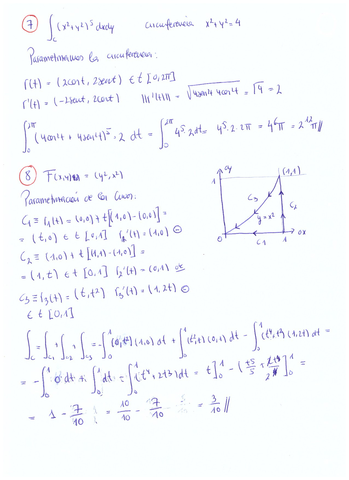 7 ∫c (x²+y²)⁵ dxdy circunferencia x²+y²=4
Parametrizamos la circunferencia:
r(t) = (2cost, 2sent) ∈ t [0,2π]
r'(t) = (-2sent, 2cost) ||r'(t)|| = √4sen²t 4cos²t = √4 = 2
∫₀^2π (4cos²t + 4sen²t)⁵·2 dt = ∫₀^2π 4⁵·2dt = 4⁵·2·2π = 4⁶π = 2¹²π //
8 F(x,y) = (y², x²)
Parametrización de las curvas:
C₁ ≡ r₁(t) = (0,0) + t[(1,0)-(0,0)] =
= (t,0) ∈ t [0,1] r₁'(t) = (1,0) ⊖
C₂ ≡ (1,0) + t [(1,1)-(1,0)] =
= (1,t) ∈ t [0,1] r₂'(t) = (0,1) ok
C₃ ≡ r₃(t) = (t,t²) r₃'(t) = (1,2t) ⊖
∈ t [0,1]
oy
1
(1,1)
C₃
C₂
y=x²
0
C₁
1
ox
∫c = ∫c₁ + ∫c₂ + ∫c₃ = -∫₀¹ (0,t²)(1,0) dt + ∫₀¹ (t²,1)(0,1) dt - ∫₀¹ (t⁴,t²)(1,2t) dt =
= -∫₀¹ 0 dt + ∫₀¹ 1dt - ∫₀¹ (t⁴+2t³)dt = t]₀¹ - (t⁵/5 + 2t⁴/4]₀¹ =
= 1 - 7/10 = 10/10 - 7/10 = 3/10 //